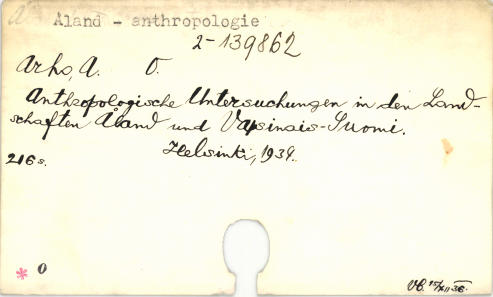 Åland - anthropologie
2-139862
Arho, A. O.
Anthropologische Untersuchungen in den Land-
schaften Åland und Varsinais-Suomi.
Helsinki, 1934.
216 s.
* 0